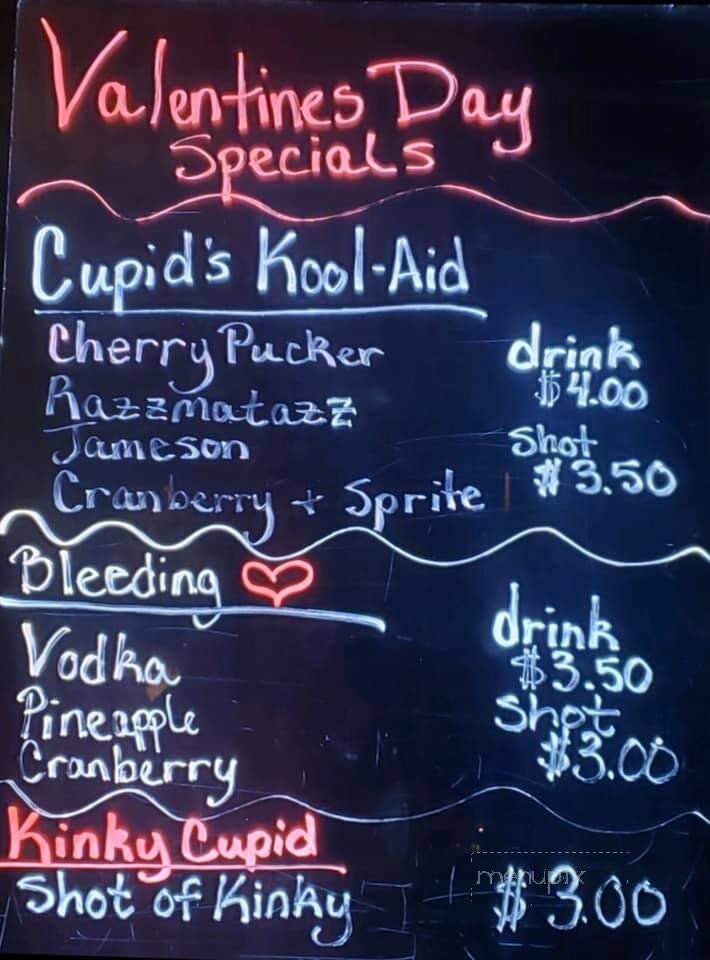 Valentines Day
Specials
Cupid's Kool-Aid
Cherry Pucker
drink
$4.00
Razzmatazz
Jameson
shot
$3.50
Cranberry + Sprite
Bleeding
drink
$3.50
Vodka
Pineapple
shot
$3.00
Cranberry
Kinky Cupid
Shot of Kinky
$3.00
menupix